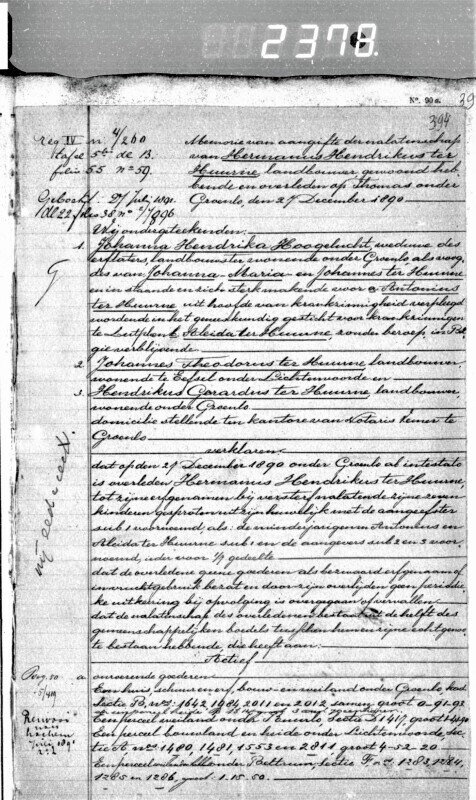 2378.
No. 90a.
39
394
reg IV n. 4/260
tafel 5bis de 13.
folio 55 no 59.
Memorie van aangifte der nalatenschap
van Hermanus Hendrikus ter
Huurne, landbouwer, gewoond heb
bende en overleden op Thomas onder
Groenlo, den 27 December 1890
Geboekt 27 Juli 1891.
Dl 22 folio 35 no 7/896
Wij ondergeteekenden:
1. Johanna Hendrika Hoogelucht, weduwe des
erflaters, landbouwster wonende onder Groenlo als voog
des van Johanna Maria en Johannes ter Huurne
en in staande en zich sterk makende voor Antonius
ter Huurne uit hoofde van krankzinnigheid verpleegd
wordende in het geneeskundig gesticht voor krankzinnigen
te Zutphen & Aleida ter Huurne, zonder beroep, in Bel
gie verblijvende
2 Johannes Theodorus ter Huurne landbouwer,
wonende te Eefsel onder Lichtenvoorde en
3. Hendrikus Gerardus ter Huurne, landbouwer,
wonende onder Groenlo
domicilie stellende ten kantore van Notaris te
Groenlo
verklaren:
dat op den 27 December 1890 onder Groenlo ab intestato
is overleden Hermanus Hendrikus ter Huurne,
tot zijne erfgenamen bij versterf nalatende zijne zeven
kinderen gesproten uit zijn huwelijk met de aangeefster
sub 1 voornoemd, als: de minderjarigen Antonius en
Aleida ter Huurne sub 1 en de aangevers sub 2 en 3 voor-
noemd, ieder voor 1/7 gedeelte
dat de overledene geen goederen als bezwaard erfgenaam of
in vruchtgebruik bezat en door zijn overlijden geen periodie
ke uitkeering bij opvolging is overgegaan of vervallen
dat de nalatenschap des overledenen bestaat uit de helft des
gemeenschappelijken boedels tusschen hem en zijne echtgenoote
bestaan hebbende, die heeft aan:
Actief
a onroerende goederen
Een huis, schuur en erf, bouw- en weiland onder Groenlo, kad.
sectie B, nos 1642, 1984, 2011 en 2012 samen, groot 0-91-92
Een perceel weiland onder Groenlo, Sectie D 1417, groot
Een perceel bouwland en heide onder Lichtenvoorde, Sec
tie A nos 1480, 1481, 1553 en 2811, groot 4-52-20
Een perceel onder Beltrum, sectie F nos 1283, 1284,
1285 en 1286, groot 1.15.50.